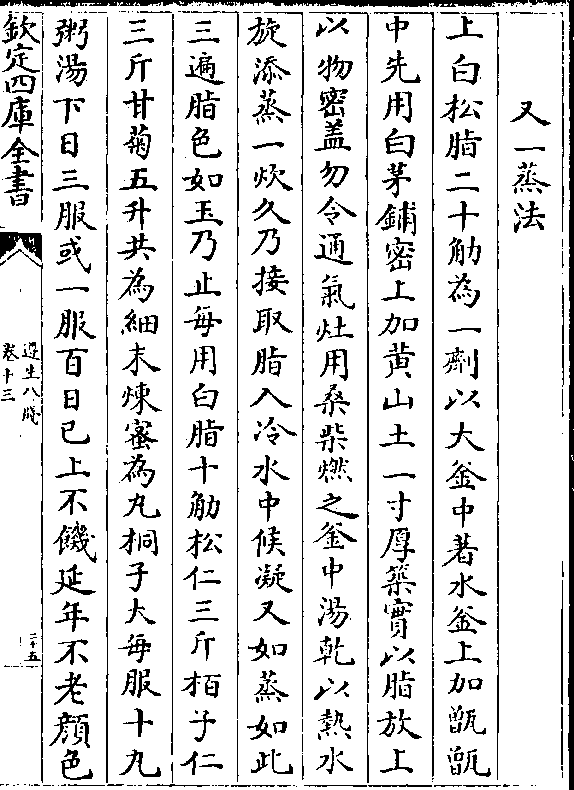 又一蒸法
上白松脂二十觔為一劑以大釜中著水釜上加甑甑
中先用白茅鋪密上加黃山土一寸厚築實以脂放上
以物密盖勿令通氣灶用桑柴燃之釜中湯乾以熱水
旋添蒸一炊久乃接取脂入冷水中候凝又如蒸如此
三遍脂色如玉乃止每用白脂十觔松仁三斤栢子仁
三斤甘菊五升共為細末煉蜜為丸桐子大每服十丸
粥湯下日三服或一服百日已上不饑延年不老顔色
欽定四庫全書
遵生八牋
卷十三
二十五